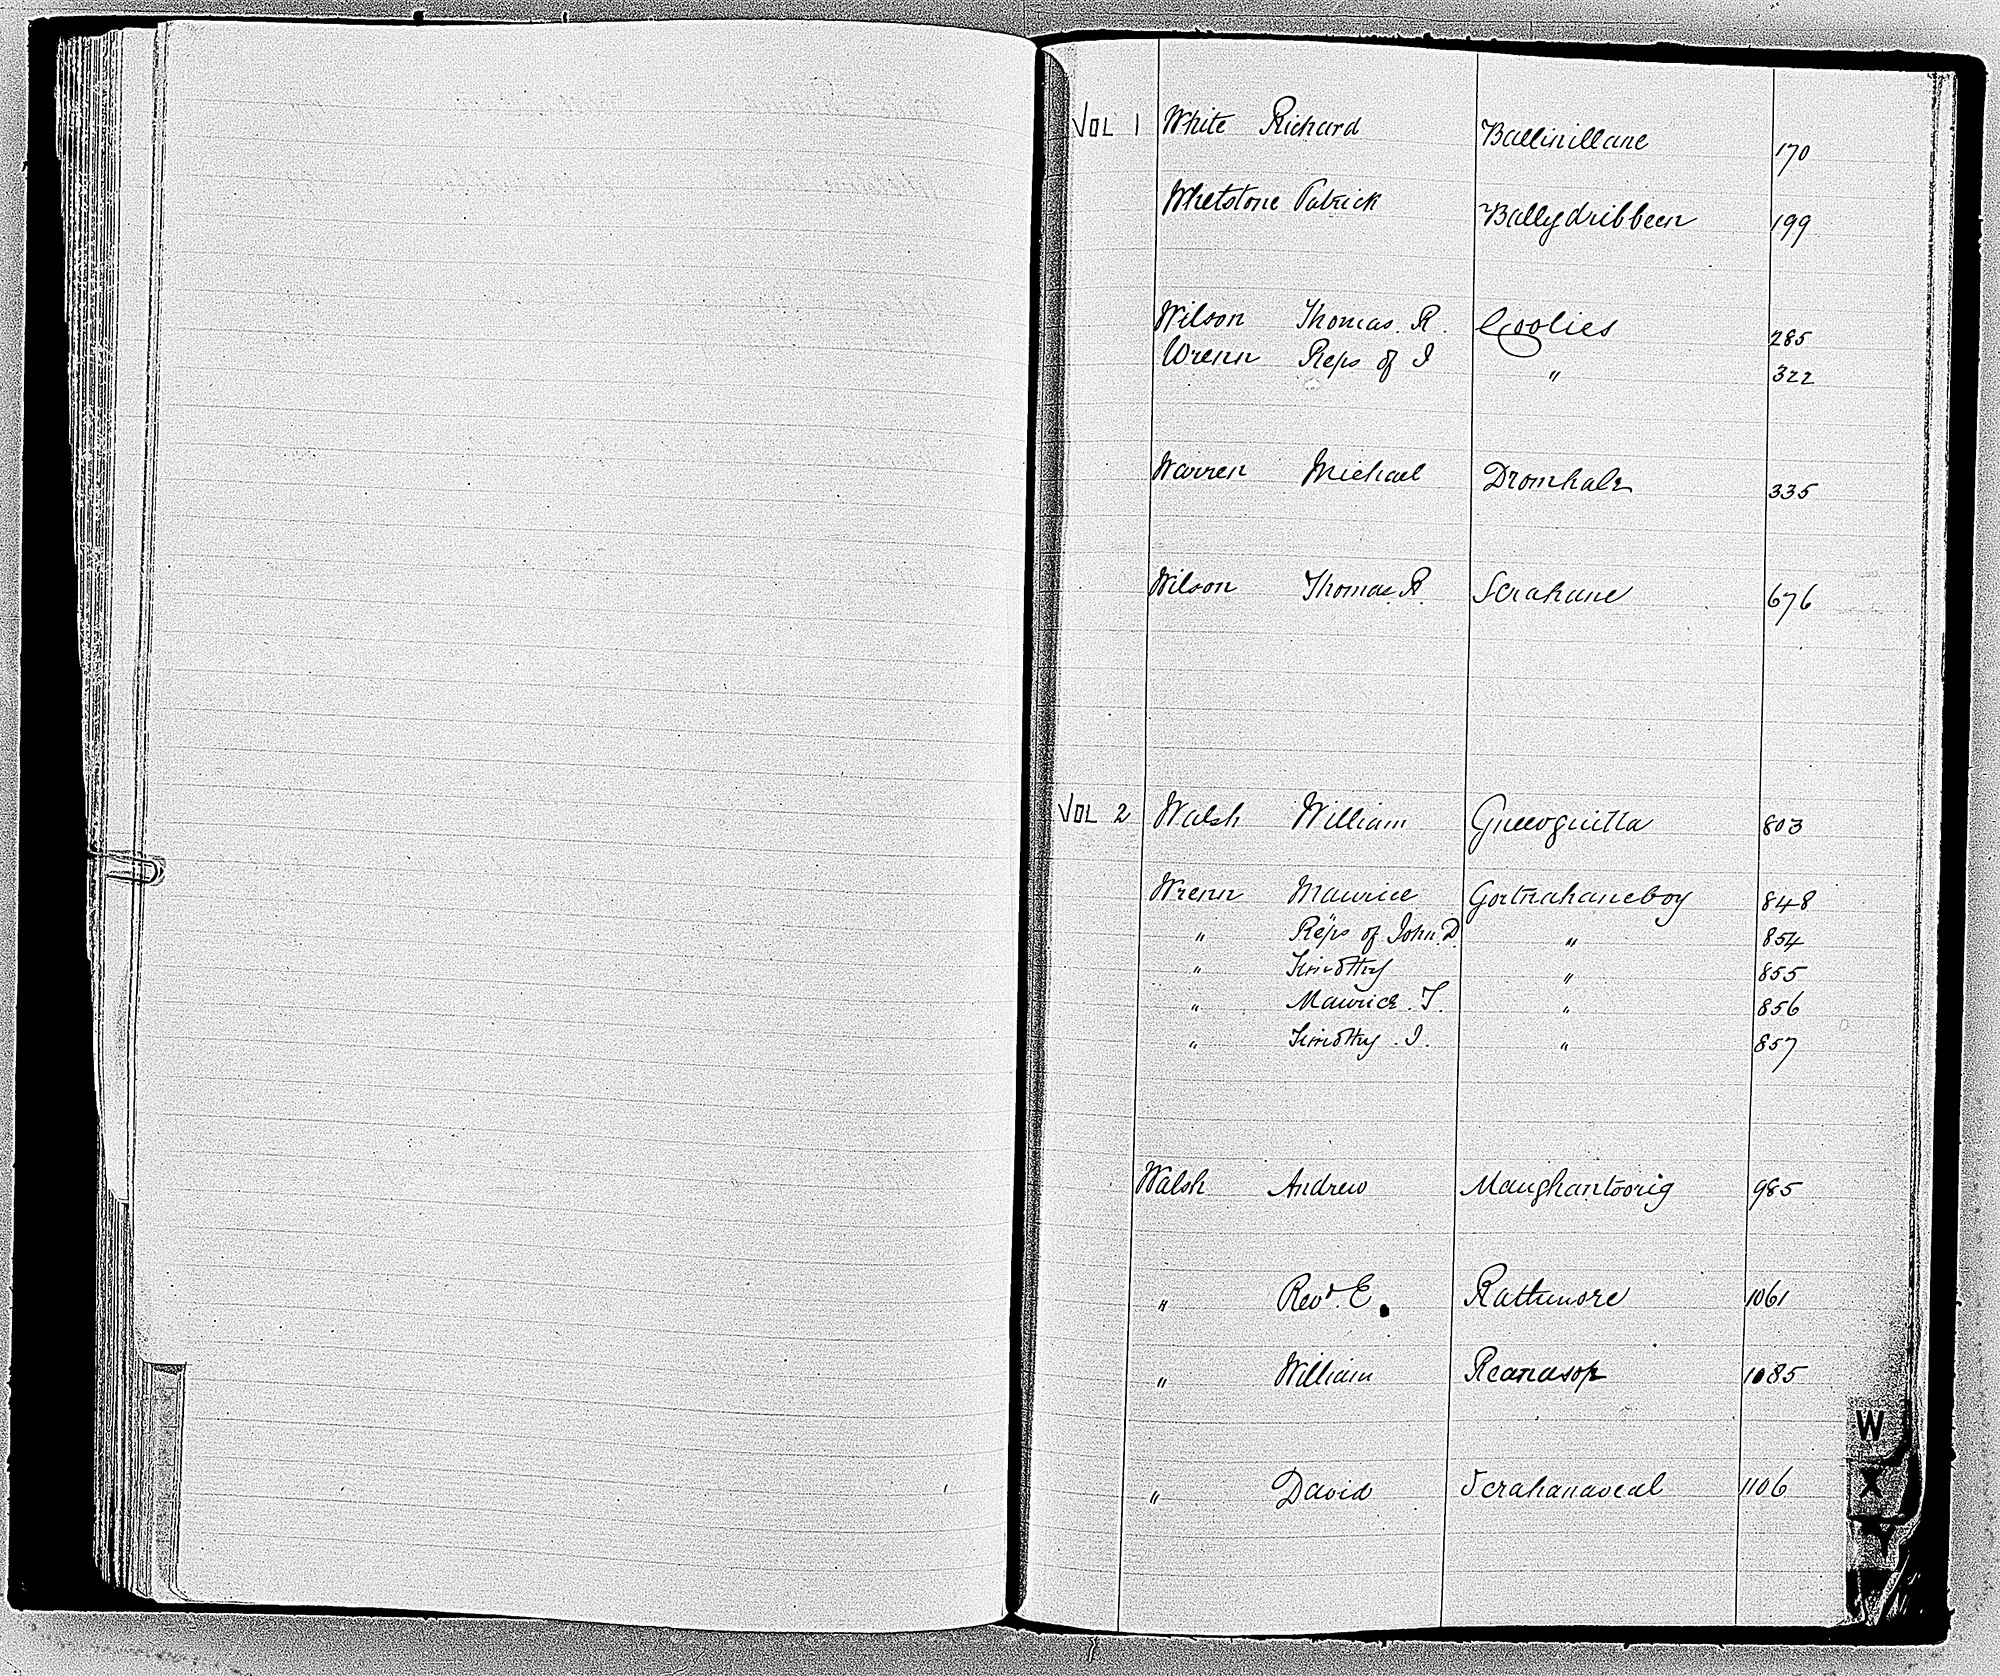 VOL 1 White Richard Ballinillane 170
Whetstone Patrick Ballydribbeen 199
Wilson Thomas. R. Coolies 285
Wrenn Reps of J " 322
Warren Michael Dromhale 335
Wilson Thomas. R. Scrahane 676
VOL 2 Walsh William Gneevguilla 803
Wrenn Maurice Gortnahaneboy 848
" Reps of John. D. " 854
" Timothy " 855
" Maurice. T. " 856
" Timothy. J. " 857
Walsh Andrew Maughantoorig 985
" Revd. E. Rathmore 1061
" William Reanasop 1085
" David Scrahanaveal 1106
W
X
Y